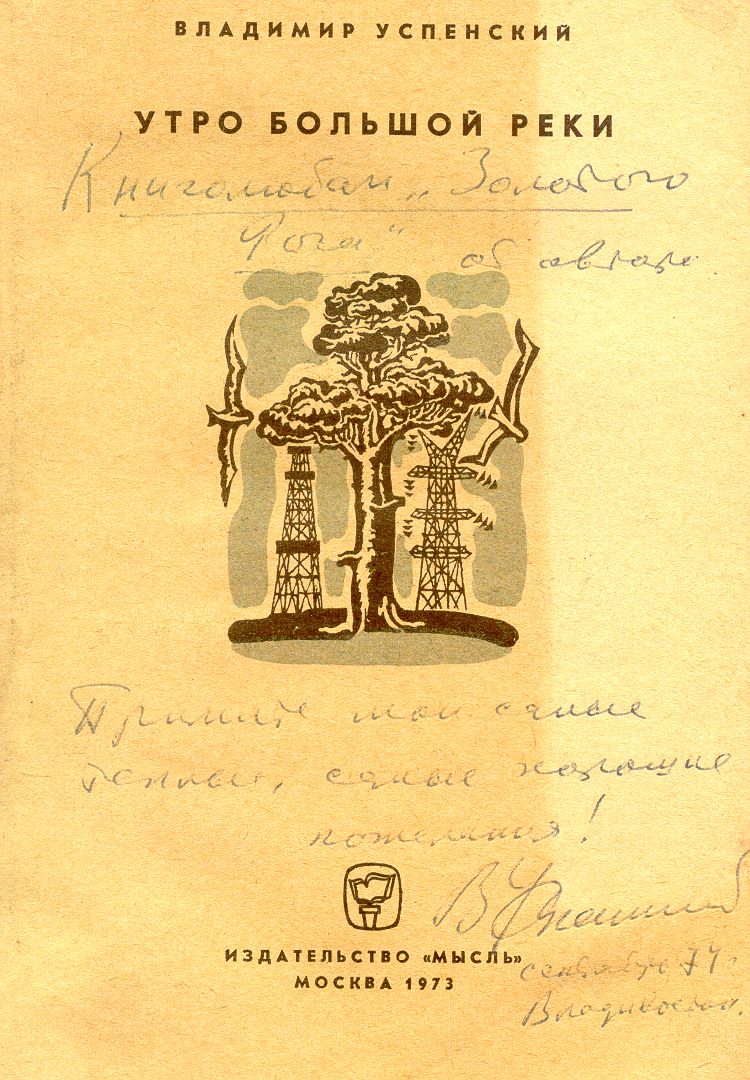 ВЛАДИМИР УСПЕНСКИЙ
УТРО БОЛЬШОЙ РЕКИ
Книголюбам „Золотого
Рога“ от автора.
Примите мои самые
теплые, самые хорошие
пожелания!
В Успенский
ИЗДАТЕЛЬСТВО «МЫСЛЬ»
МОСКВА 1973
сентябрь 74 г
Владивосток.